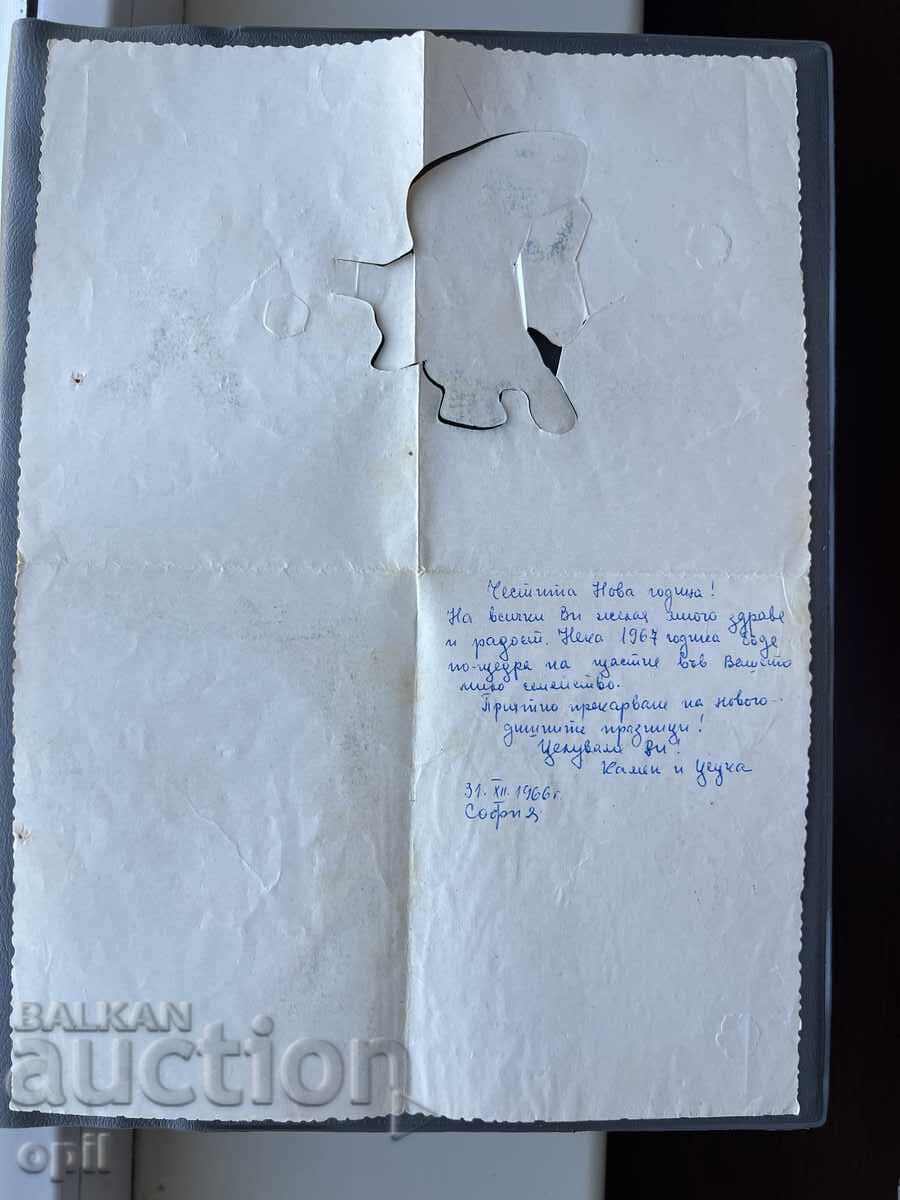 Честита Нова година!
На всички Ви желая много здраве
и радост. Нека 1967 година бъде
по-щедра на щастие във Вашето
мило семейство.
Приятно прекарване на нового-
дишните празници!
Целувам Ви!
Камен и Цецка
31. XII. 1966 г.
София
BALKAN
auction
opil